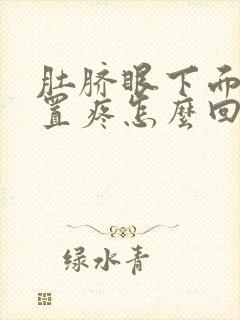 肚脐眼下而
置疼怎麼回
绿水青